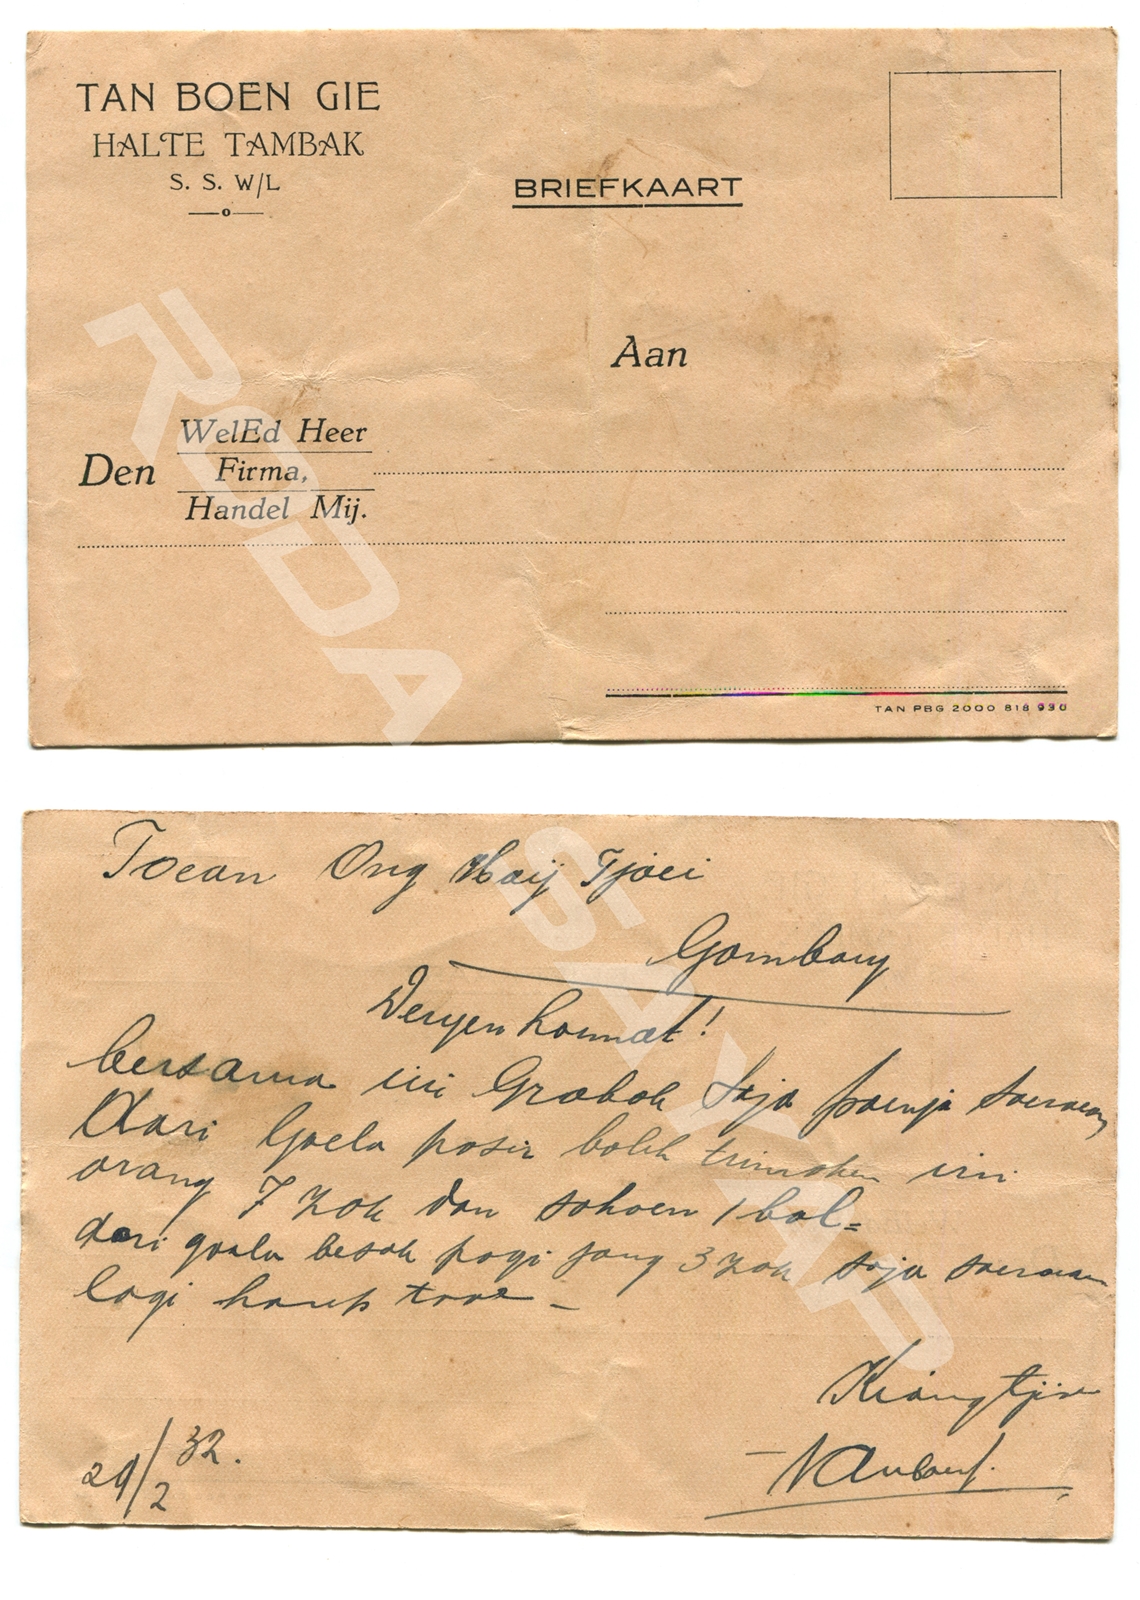 TAN BOEN GIE
HALTE TAMBAK
S. S. W/L
BRIEFKAART
Aan
Den
WelEd Heer
Firma,
Handel Mij.
TAN PBG 2000 818 930
RODA
SAYAP
Toean Ong Haij Tjoei
Gombong
Dengen hormat!
bersama ini Grobak saja poenja soeroean
dari Goela pasir boleh trimaken ini
orang 7 zak dan sahoen 1 bal=
dari goela besok pagi jang 3 zak saja soeroean
lagi harep taoe -
Kiang
29/2 32.